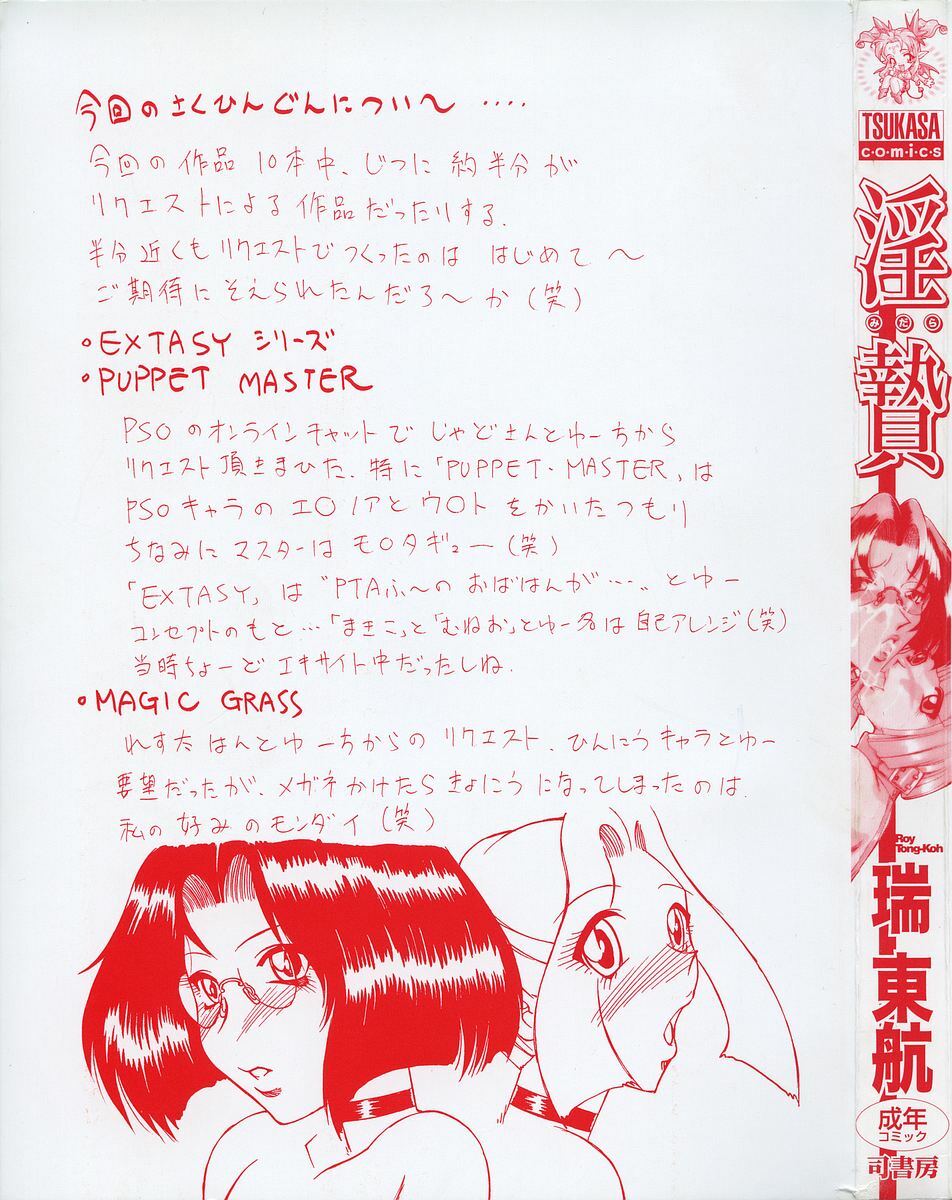 今回のさくひんぐんについ〜 ‥‥
今回の作品10本中、じつに約半分が
リクエストによる作品だったりする.
半分近くもリクエストでつくったのは はじめて〜
ご期待にそえられたんだろ〜か(笑)
•EXTASY シリーズ
•PUPPET MASTER
PSOのオンラインチャットで じゃどさんとゆーちから
リクエスト頂きまひた. 特に「PUPPET・MASTER」は
PSOキャラの エ〇ノアと ウ〇ト をかいたつもり
ちなみに マスターは モ〇タギュー(笑)
「EXTASY」は "PTAふ〜の おばはんが…" とゆー
コンセプトのもと…「まきこ」と「むねお」とゆー名は 自己アレンジ(笑)
当時ちょーど エキサイト中だったしね.
•MAGIC GRASS
れす太 はんとゆーちからの リクエスト、ひんにうキャラとゆー
要望だったが、メガネかけたら きょにうになってしまったのは
私の好みのモンダイ(笑)
TSUKASA
c•o•m•i•c•s
淫贄
みだら
Roy
Tong-Koh
瑞東航
成年
コミック
司書房